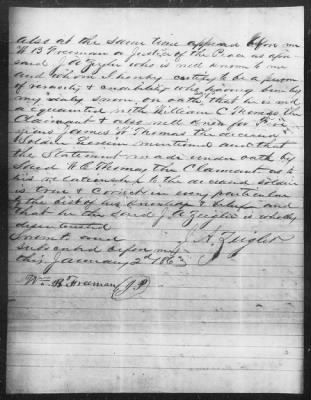 also at the same time appeared before me
W B Freeman a Justice of the Peace as afore
said J A Zeigler who is well known to me
and whom I hereby certify to be a person
of veracity & credibility who having been by
me duly sworn, on oath, says that he is well
acquainted with William C Thomas, the
Claimant & also well knew for
years James W Thomas the deceased
Soldier herein mentioned and that
the Statement made under oath by
said W C Thomas the Claimant as to
his relationship to the deceased soldier
is true & correct in every particular
to the best of his knowledge & belief and
that he the said J A Zeigler is wholly
disinterested
Sworn to and J. A. Zeigler
subscribed before me
this January 2d 1863
Wm B Freeman (J P)